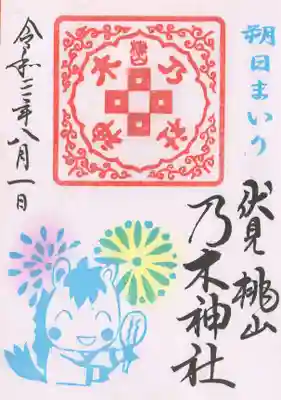 朔日まいり
伏見桃山
乃木神社
令和三年八月一日